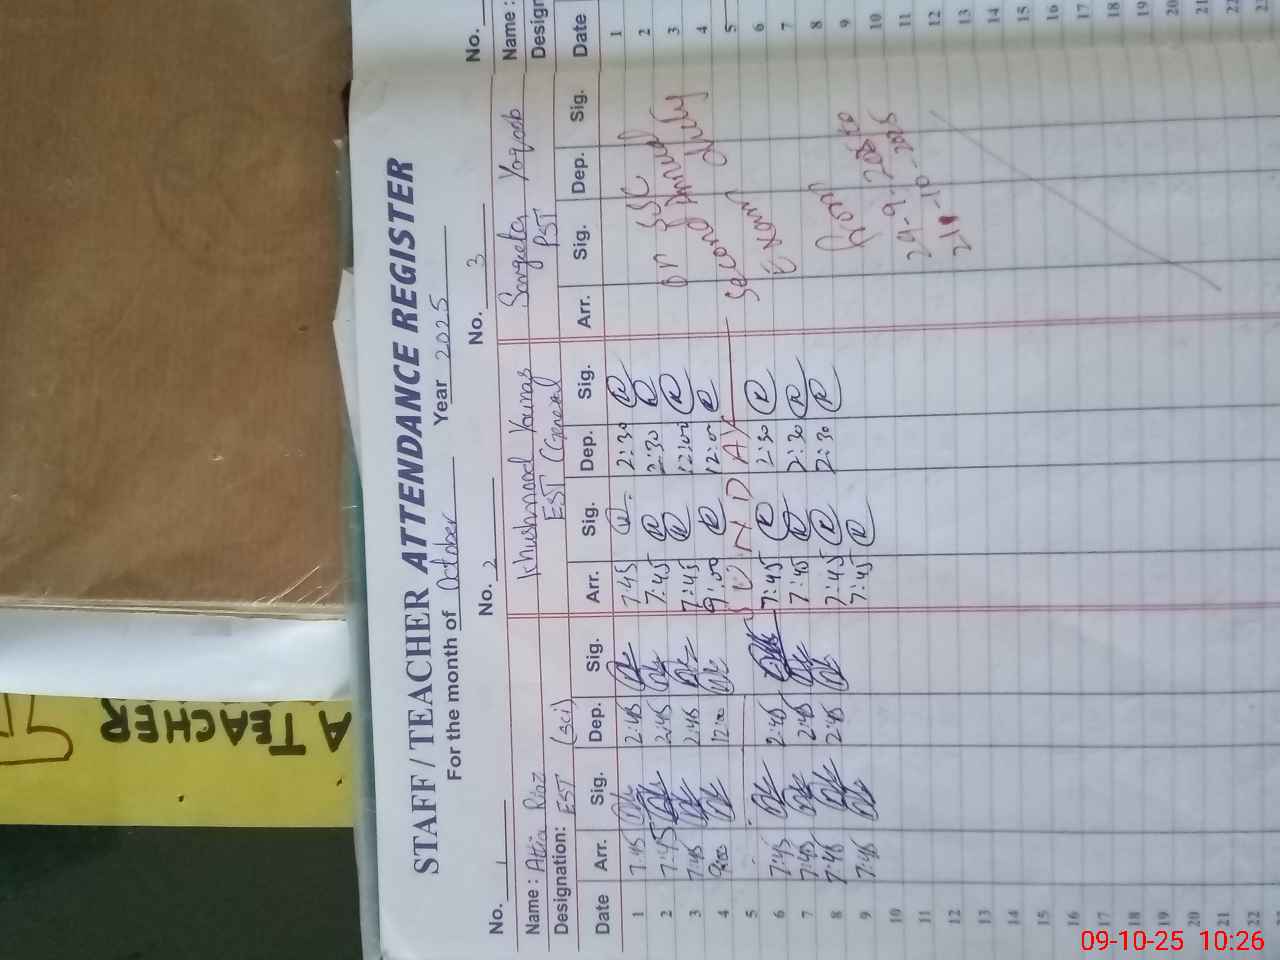 STAFF / TEACHER ATTENDANCE REGISTER
For the month of October Year 2025
No. 1 No. 2 No. 3 No.
Name : Attia Riaz Khushnood Younas Yaqoob Name :
Designation: EST (sci) EST (General) PST Design
Date Arr. Sig. Dep. Sig. Arr. Sig. Dep. Sig. Arr. Sig. Dep. Sig. Date
1 7:45 2:45 7:45 2:30 1
2 7:45 2:45 7:45 2:30 on SSC 2
3 7:45 2:45 7:45 12:00 Second Annual 3
4 9:00 12:00 9:00 12:00 duty 4
5 SUNDAY Second 5
6 7:45 2:45 7:45 2:30 Exam 6
7 7:45 2:45 7:45 2:30 7
8 7:45 2:45 7:45 2:30 From 8
9 7:45 7:45 9
10 29-9-2025 to 10
11 -10-2025 11
12 12
13 13
14 14
15 15
16 16
17 17
18 18
19 19
20 20
21 21
22 22
A TEACHER
09-10-25 10:26